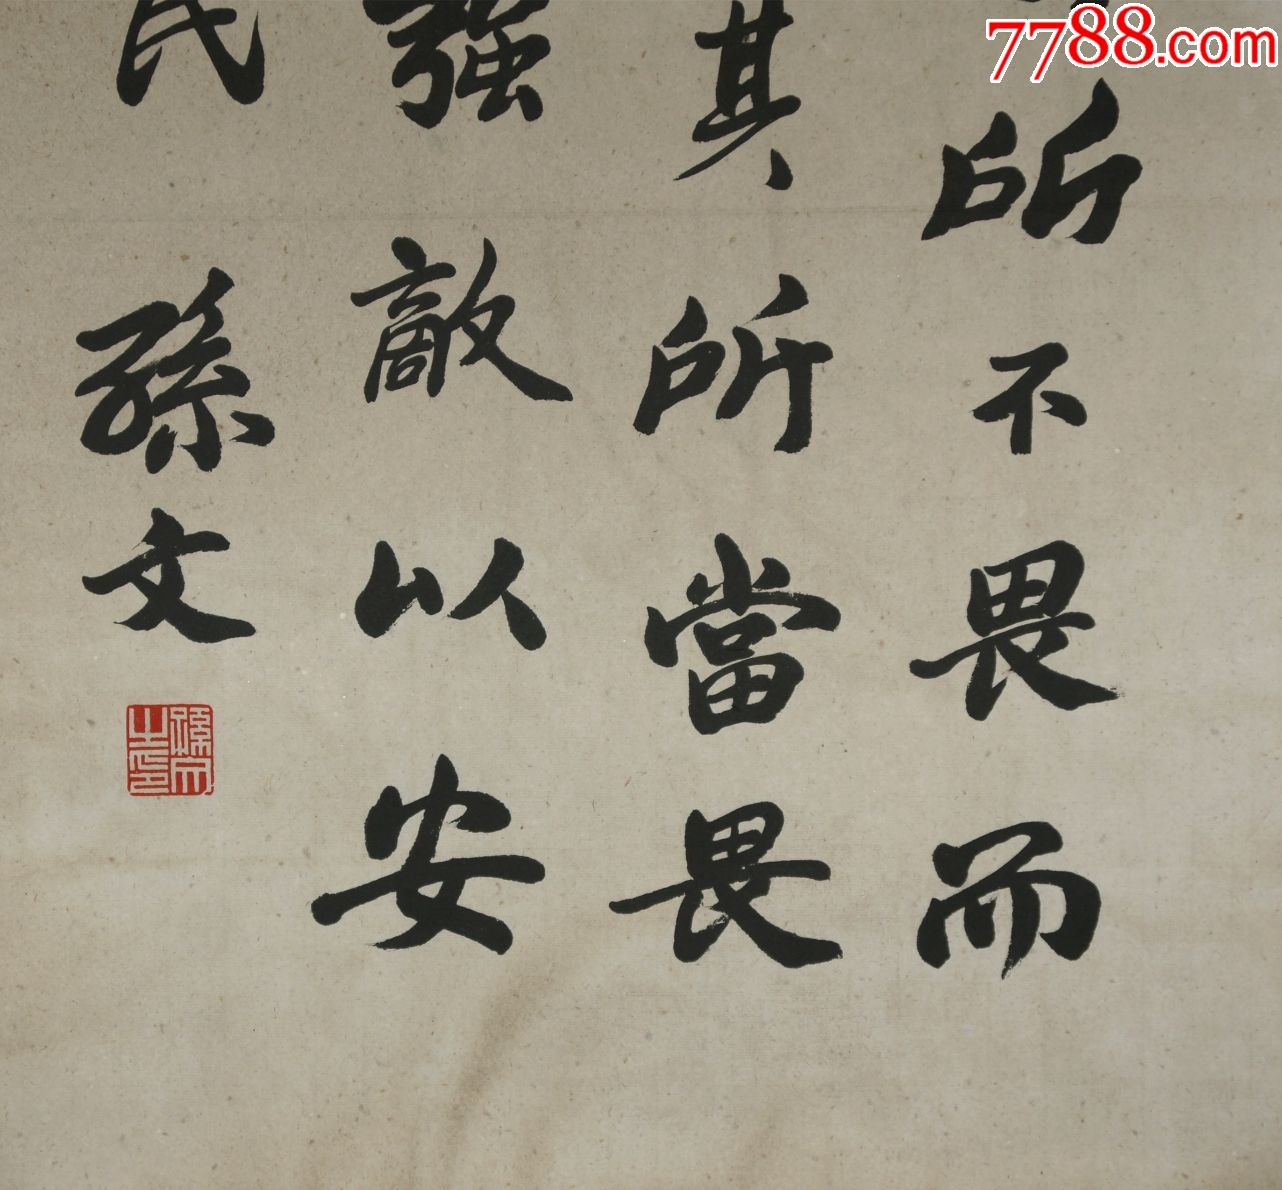 所不畏而
其所當畏
強敵以安
民 孫文
孫文之印
7788.com